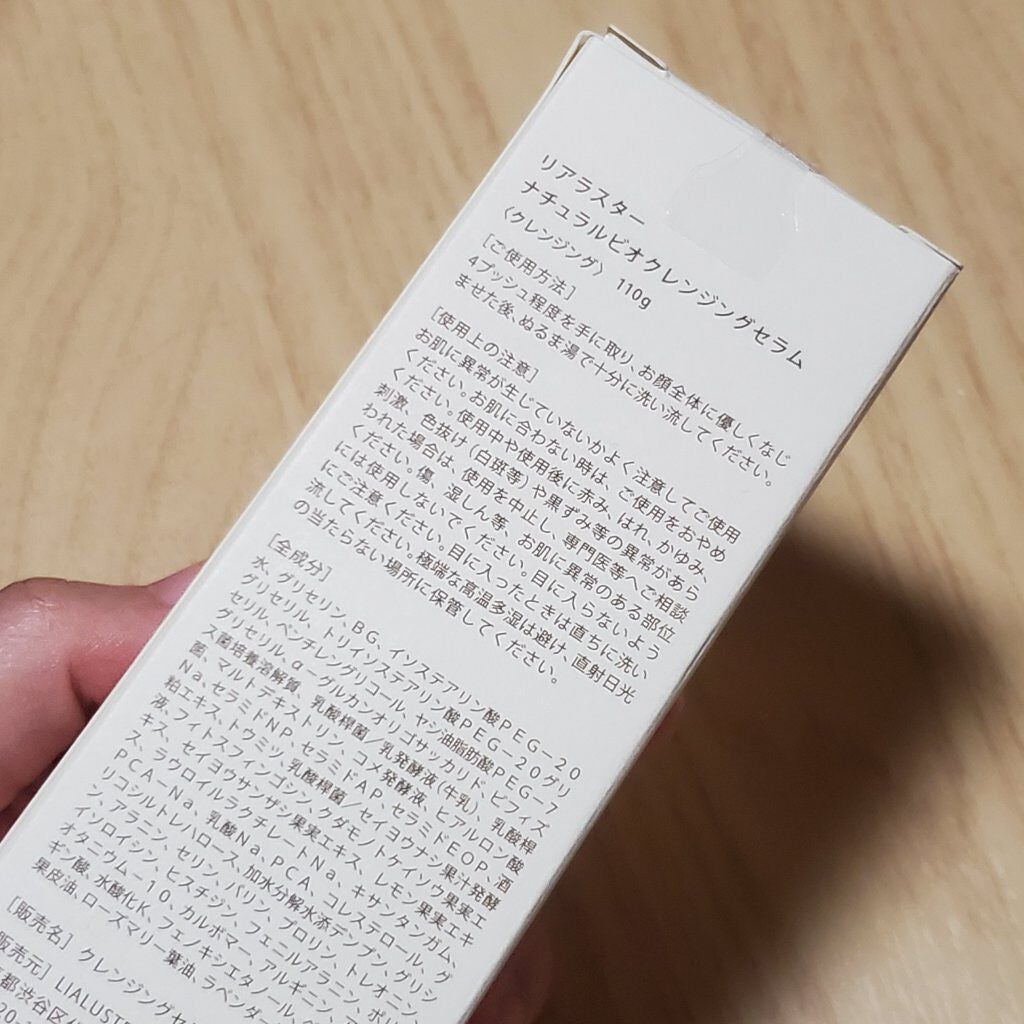 リアラスター
ナチュラルビオクレンジングセラム
〈クレンジング〉 110g
[ご使用方法]
4プッシュ程度を手に取り、お顔全体に優しくなじ
ませた後、ぬるま湯で十分に洗い流してください。
[使用上の注意]
お肌に異常が生じていないかよく注意してご使用
ください。お肌に合わない時は、ご使用をおやめ
ください。使用中や使用後に赤み、はれ、かゆみ、
刺激、色抜け(白斑等)や黒ずみ等の異常があら
われた場合は、使用を中止し、専門医等へご相談
ください。傷、湿しん等、お肌に異常のある部位
には使用しないでください。目に入らないよう
にご注意ください。目に入ったときは直ちに洗い
流してください。極端な高温多湿は避け、直射日光
の当たらない場所に保管してください。
[全成分]
水、グリセリン、BG、イソステアリン酸PEG-20
グリセリル、トリイソステアリン酸PEG-20グリ
セリル、ペンチレングリコール、ヤシ油脂肪酸PEG-7
グリセリル、α-グルカンオリゴサッカリド、ビフィズ
ス菌培養溶解質、乳酸桿菌/乳発酵液(牛乳)、乳酸桿
菌、マルトデキストリン、コメ発酵液、ヒアルロン酸
Na、セラミドNP、セラミドAP、セラミドEOP、酒
粕エキス、トウミツ、乳酸桿菌/セイヨウナシ果汁発酵
液、フィトスフィンゴシン、クダモノトケイソウ果実エ
キス、セイヨウサンザシ果実エキス、レモン果実エキ
ス、ラウロイルラクチレートNa、キサンタンガム、
PCA-Na、乳酸Na、PCA、コレステロール、グ
リコシルトレハロース、加水分解水添デンプン、グリシ
ン、アラニン、セリン、バリン、プロリン、トレオニン、
イソロイシン、ヒスチジン、フェニルアラニン、ポリ
オタニウム-10、カルボマー、アルギニン、ア
ギン酸、水酸化K、フェノキシエタノール、ベ
果皮油、ローズマリー葉油、ラベンダー
[販売名] クレンジングセ
販売元] LIALUSTE
都渋谷区